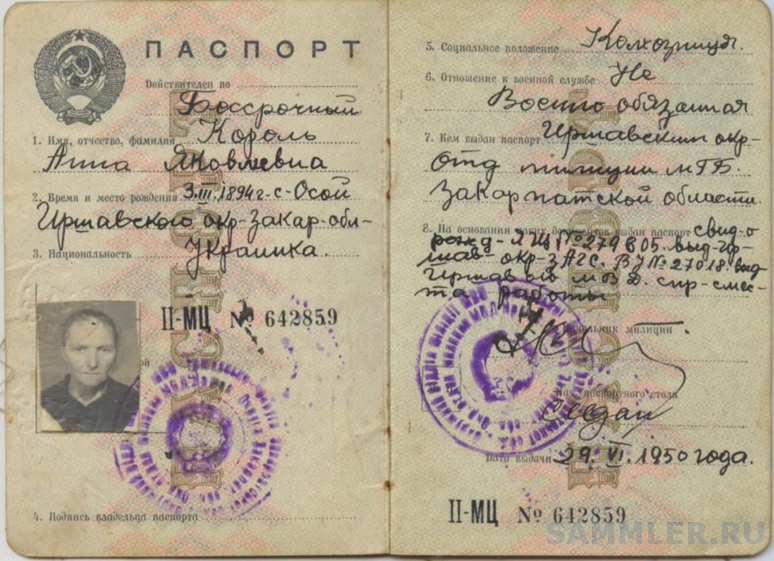 ПАСПОРТ
Действителен по
Бессрочный
Король
1. Имя, отчество, фамилия
Анна Яковлевна
2. Время и место рождения 3.III.1894г-с-Осой
Иршавского окр-Закар-обл-
3. Национальность Украинка.
II-МЦ № 642859
4. Подпись владельца паспорта
5. Социальное положение Колхозница.
6. Отношение к военной службе Не
Военно обязанная
7. Кем выдан паспорт Иршавским окр-
отд милиции МГБ
Закарпатской области.
8. На основании каких документов выдан паспорт свид-о
рожд-ЯЦ №279805. выд-Ир-
шав- окр-ЗАГС. ВУ №27018. выд
Иршав МВД. спр-с мес-
та работы
Начальник милиции
Нач. паспортного стола
Дата выдачи 29.VI.1950 года.
II-МЦ № 642859
SAMMLER.RU